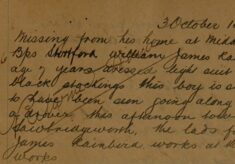 3 October 19
Missing from his home at Midd
Bps Stortford william James Ra
age 7 years dressed light suit
black stockings this boy is a
to have been seen going along
a drover this afternoon tow
Sawbridgeworth, the lads f
James Rainbird works at th
works